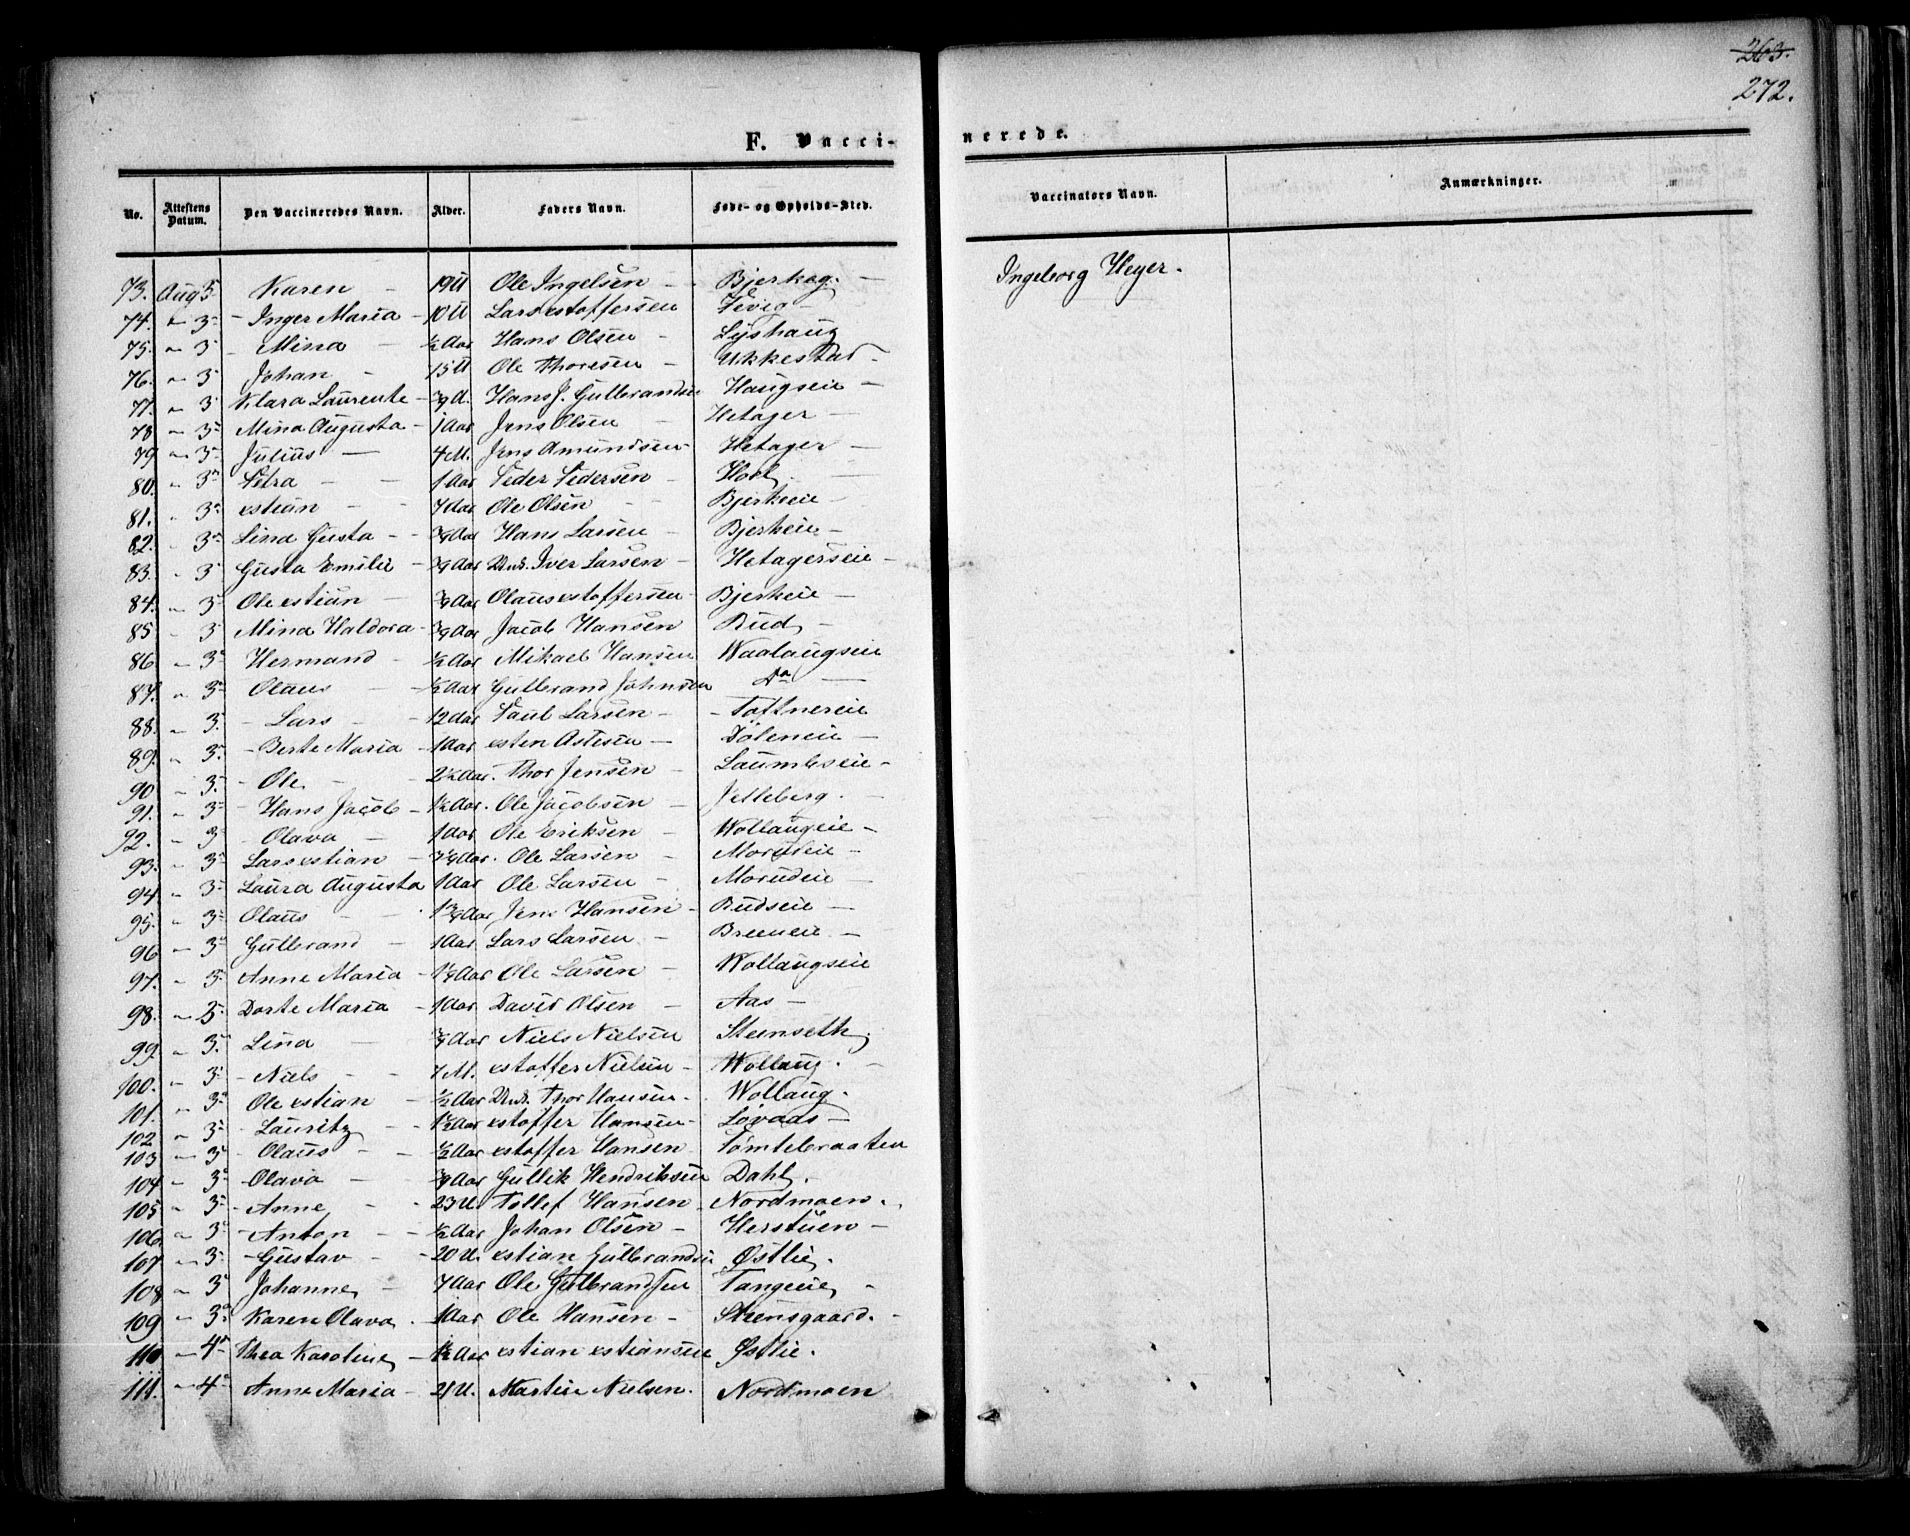 263.
272.
F. Vaccinerede.
No. Attestens Datum. Den Vaccineredes Navn. Alder. Faders Navn. Føde- og Opholds-Sted. Vaccinators Navn. Anmærkninger.
73. Aug 3 Karen - 19 U Ole Ingelsen - Bjerkag. - Ingeborg Heyer.
74. " 3 - Inger Maria - 10 U Lars xstoffersen
75. " 3 - Mina - ½ Aar Hans Olsen - Lyshaug
76. " 3 Johan - 15 U Ole Thoresen - Ukkestad -
77. " 3 Klara Laurente - Hans J. Gulbrandsen Haugseie -
78 " 3 Mina Augusta - 1 Aar Jens Olsen - Hetager -
79 " 3 Julius - 4 M. Jens Amundsen - Hetager -
80. " 3 Petra - 1 Aar Peder Pedersen - Hoel
81. " 3 xstian - 7 Aar Ole Olsen - Bjerkeie -
82. " 3 Lina Gusta - ¾ Aar Hans Larsen - Bjerkeie -
83. " 3 Gusta Emilie - ¾ Aar Iver Larsen - Hetagerseie -
84. " 3 Ole xstian - ¾ Aar Olaus xstoffersen - Bjerkeie -
85 " 3 Mina Haldora - ¾ Aar Jacob Hansen Rud -
86 " 3 Hermand - ½ Aar Mikael Hansen Waalaugseie
87. " 3 Olaus - ½ Aar Gulbrand Johnsen Do -
88. " 3. - Lars - 12 Aar Paul Larsen - Toftnereie
89. " 3. - Berte Maria - 1 Aar xsten - Døleneie -
90 " 3. - Ole - 2½ Aar. Thor Jensen - Laumbseie -
91. " 3 - Hans Jacob - 1½ Aar. Ole Jacobsen - Jelleberg. -
92. " 3 - Olava - 1 Aar Ole Eriksen - Wollaugeie -
93. " 3 Lars xstian - Ole Larsen - Morudeie -
94 " 3 Laura Augusta 1 Aar Ole Larsen - Morudeie -
95. " 3 Olaus - 1¾ Aar Jens Hansen - Rudseie -
96 " 3 Gulbrand - 1 Aar Lars Larsen - Breeneie -
97. " 3 Anne Maria - 1¼ Aar Ole Larsen - Wollaugseie
98. " 3 Dorte Maria - 1 Aar David Olsen - Aas -
99. " 3. Lina - ¾ Aar Niels Nielsen Steenseth
100. " 3 - Niels - 7 M. xstoffer Nielsen - Wollaug. -
101. " 3 Ole xstian - ½ Aar Thor Hansen - Wollaug -
102 " 3 Lauritz - 1½ Aar xstoffer Hansen - Løvaas -
103 " 3 - Olaus - ½ Aar xstoffer Hansen Tømtebraaten
104 " 3 - Olava - ¾ Aar Gullik Hendriksen Dahl.
105 " 3 - Anne - 23 U. Tollef Hansen Nordmoen -
106 " 3 - Anton - ½ Aar Johan Olsen - Herstuen -
107 " 3 - Gustav - 20 U. xstian Gulbrandsen Østlie.
108 " 3 Johanne - 7 Aar Ole Gulbrandsen Tangeie -
109 " 3. Karen Olava. 1 Aar Ole Hansen - Steensgaard. -
110 " 4 Thea Karoline - 1½ Aar xstian xstiansen Østlie.
111. " 4 Anne Maria - 21 U. Martin Nielsen. Nordmoen